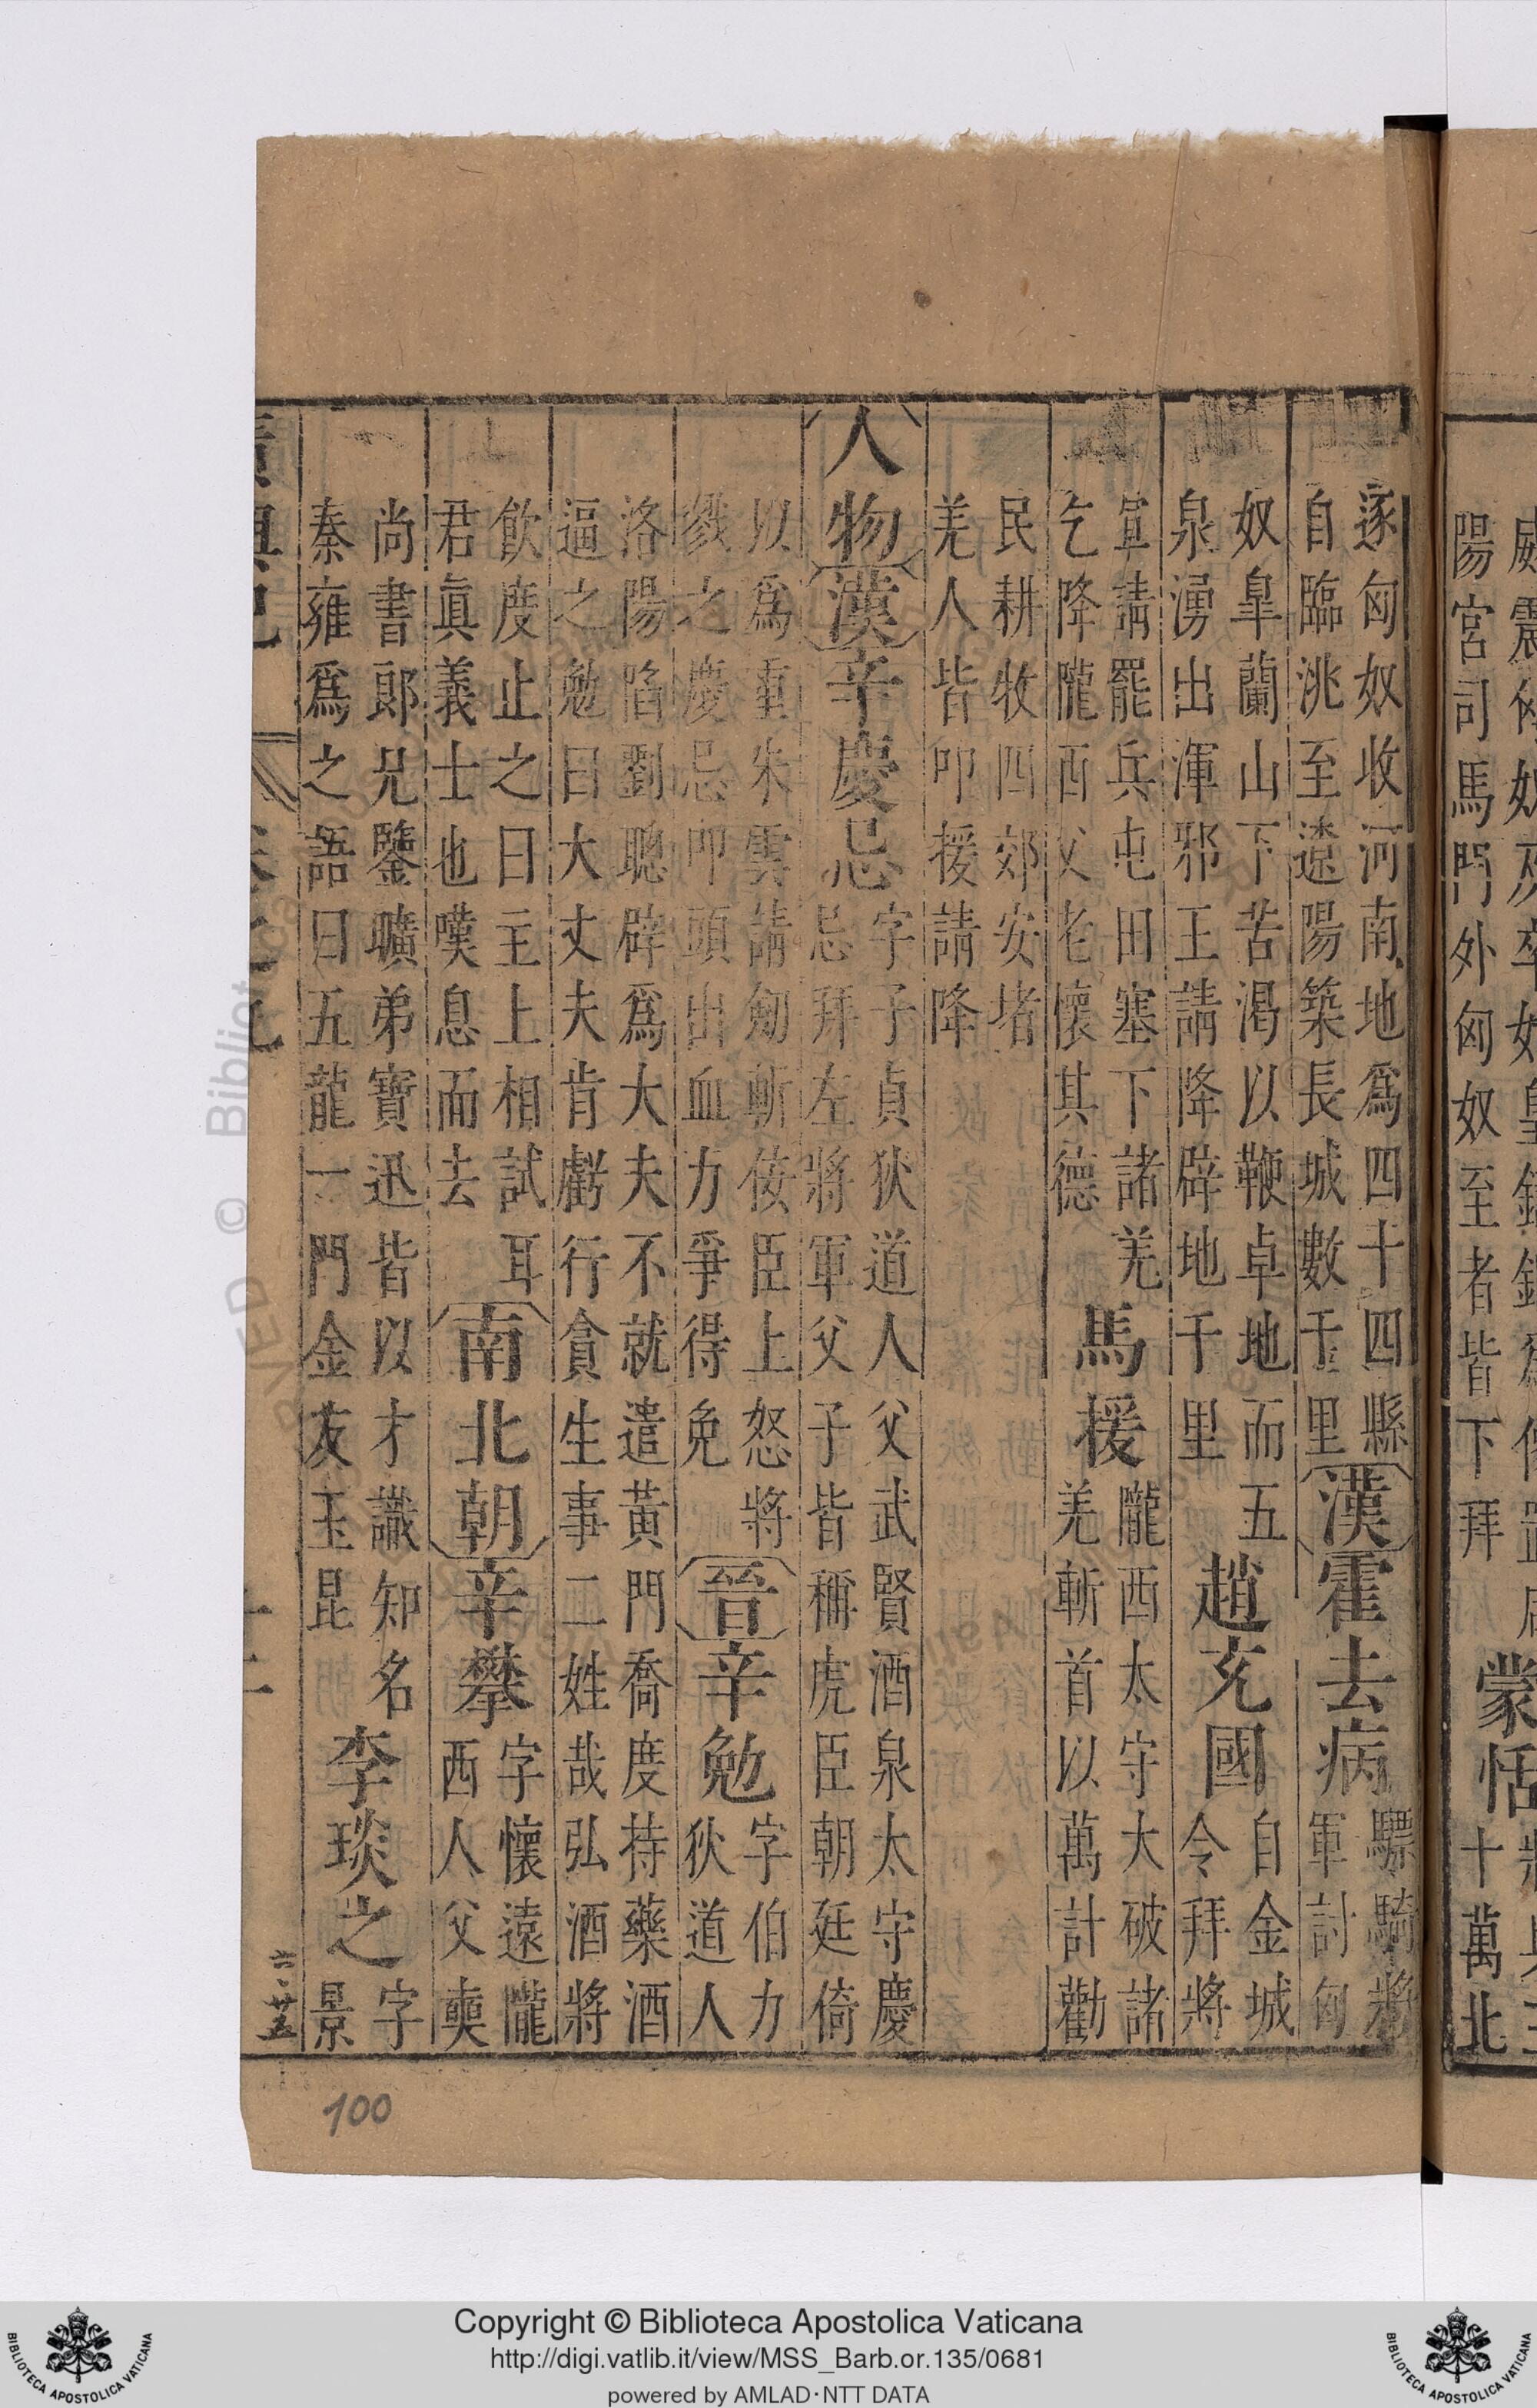 陽宮司馬門外匈奴至者皆下拜
蒙恬
十萬北
逐匈奴收河南地爲四十四縣
自臨洮至遼陽築長城數千里
漢霍去病
驃騎將
軍討匈
奴臯蘭山下苦渴以鞭卓地而五
泉湧出渾邪王請降辟地千里
趙充國
自金城
令拜將
軍請罷兵屯田塞下諸羌
乞降隴西父老懷其德
馬援
隴西太守大破諸
羌斬首以萬計勸
民耕牧四郊安堵
羌人皆叩援請降
人物漢辛慶忌
字子貞狄道人父武賢酒泉太守慶
忌拜左將軍父子皆稱虎臣朝廷倚
以爲重朱雲請劒斬佞臣上怒將
戮之慶忌叩頭出血力爭得免
晉辛勉
字伯力
狄道人
洛陽陷劉聰辟爲大夫不就遣黃門喬度持藥酒
逼之勉曰大丈夫肯虧行貪生事二姓哉弘酒將
飲度止之曰主上相試耳
君眞義士也嘆息而去
南北朝辛攀
字懷遠隴
西人父奭
尚書郎兄鑒曠弟寶迅皆以才識知名
秦雍爲之語曰五龍一門金友玉昆
李琰之
字
景
六·廿五
100
Copyright © Biblioteca Apostolica Vaticana
http://digi.vatlib.it/view/MSS_Barb.or.135/0681
powered by AMLAD·NTT DATA
BIBLIOTECA APOSTOLICA VATICANA
BIBLIOTECA APOSTOLICA VATICANA